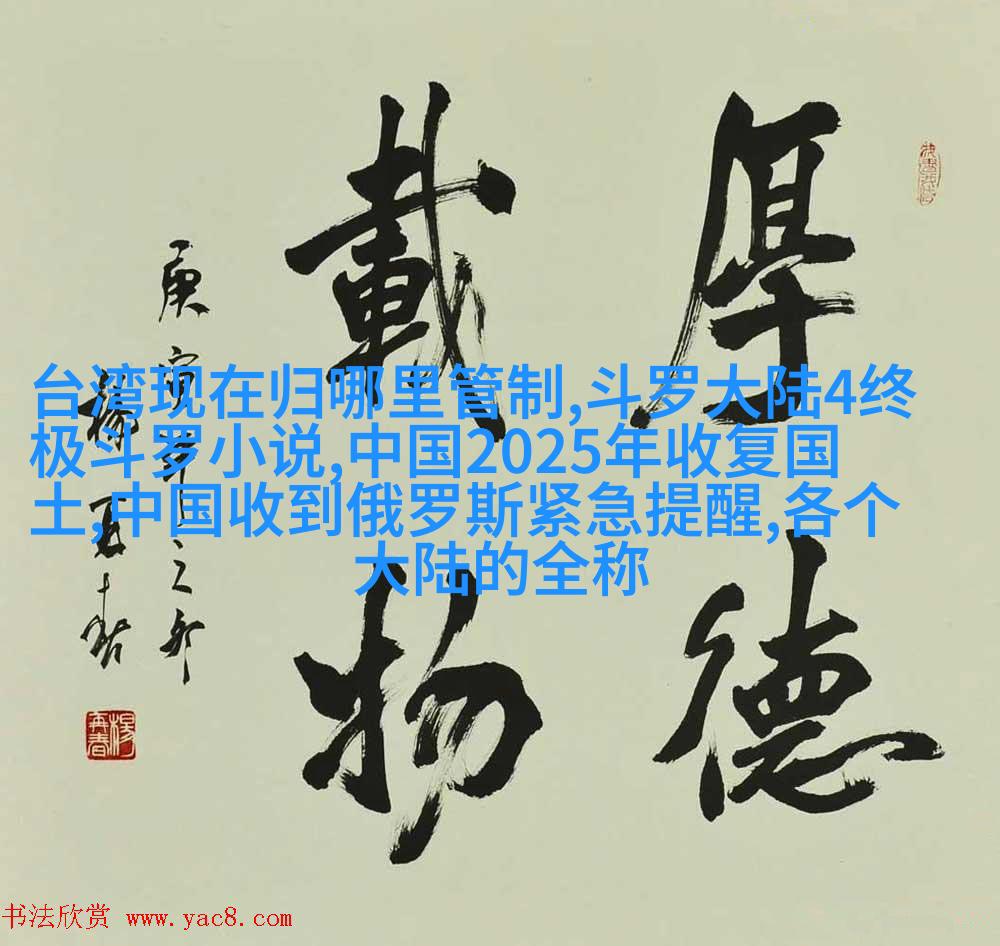 厚德
載物
庚寅年之秋
楊再春
楊再春
台湾现在归哪里管制,斗罗大陆4终
极斗罗小说,中国2025年收复国
土,中国收到俄罗斯紧急提醒,各个
大陆的全称
书法欣赏 www.yac8.com